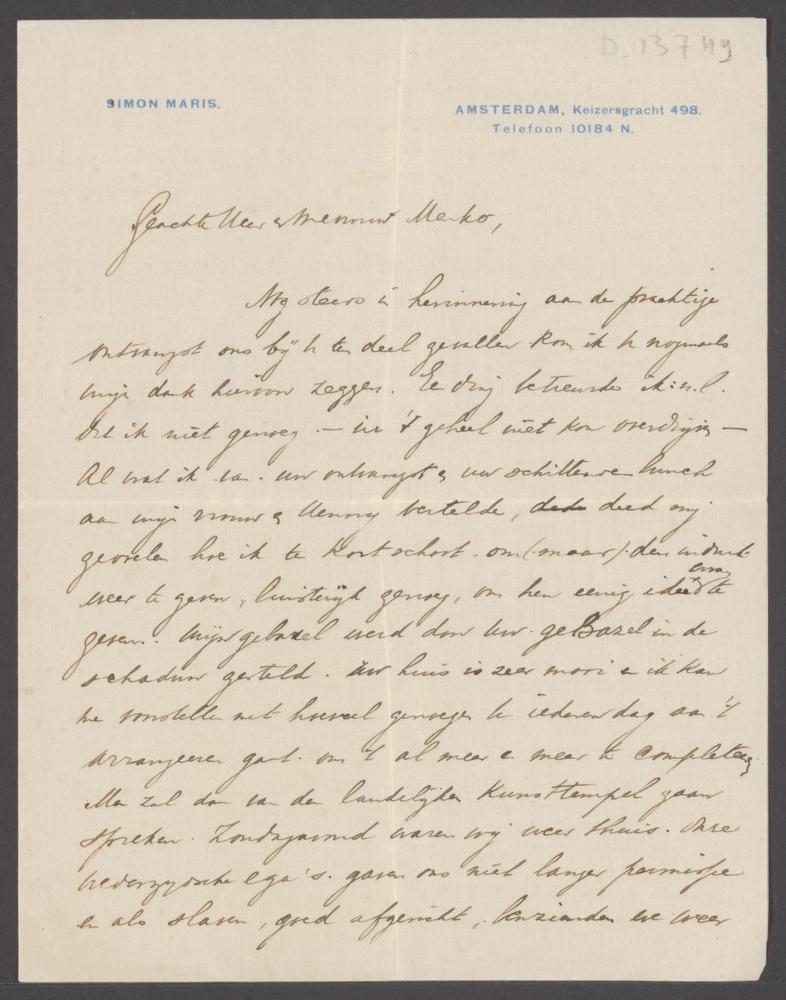 D. 13749
SIMON MARIS.
AMSTERDAM, Keizersgracht 498.
Telefoon 10184 N.
Geachte Heer en Mevrouw
Nog steeds in herinnering aan de prachtige
ontvangst ons bij U ten deel gevallen kom ik U nogmaals
mijn dank hiervoor zeggen. Een ding betreurde ik: n.l.
dat ik niet genoeg — in 't geheel niet kon
Al wat ik van uw ontvangst en uw schitterende lunch
aan mijn vrouw en Henny vertelde, deed mij
gevoelen hoe ik te kort schoot om (maar) den indruk
weer te geven, luisterijk genoeg, om hen eenig idee te
ervan
geven. Mijn gebazel werd door Uw geBazel in de
schaduw gesteld. Uw huis is zeer mooi en ik kan
me voorstellen met hoeveel genoegen U iederen dag aan 't
arrangeeren gaat om 't al meer en meer te completeeren
Men zal dan van den landelijken Kunsttempel gaan
spreken. Zondagavond waren wij weer thuis. Onze
ega's gaven ons niet langer permissie
en als slaven, goed afgericht, we weer